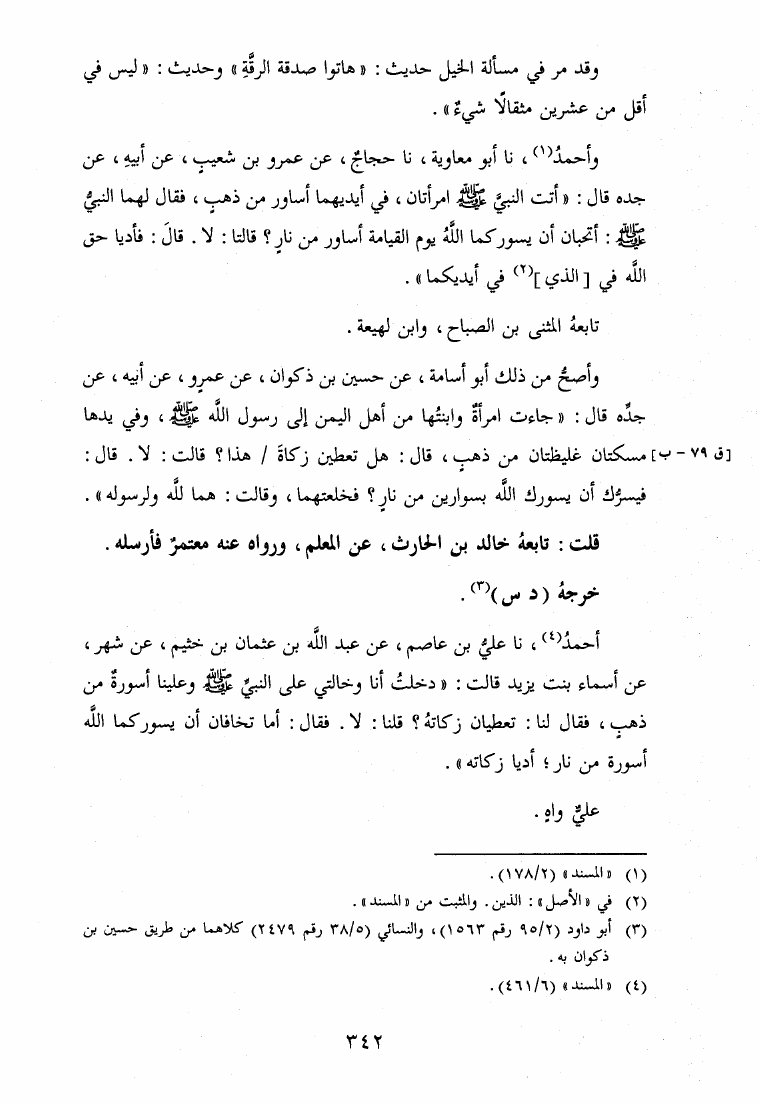 وقد مر في مسألة الخيل حديث : « هاتوا صدقة الرقَّةِ » وحديث : « ليس في
أقل من عشرين مثقالًا شيءٌ » .
وأحمدُ(١) ، نا أبو معاوية ، نا حجاجٌ ، عن عمرو بن شعيبٍ ، عن أبيهِ ، عن
جده قال : « أتت النبيَّ ﷺ امرأتان ، في أيديهما أساور من ذهبٍ ، فقال لهما النبيُّ
ﷺ : أتحبان أن يسوركما اللَّهُ يوم القيامة أساور من نارٍ ؟ قالتا : لا . قالَ : فأديا حق
اللَّه في [ الذي ](٢) في أيديكما » .
تابعهُ المثنى بن الصباح ، وابن لهيعة .
وأصحُّ من ذلك أبو أسامة ، عن حسين بن ذكوان ، عن عمرٍو ، عن أبيه ، عن
جدِّه قال : « جاءت امرأةٌ وابنتُها من أهل اليمن إلى رسول اللَّه ﷺ ، وفي يدها
[ق ٧٩ - ب] مسكتان غليظتان من ذهبٍ ، قال : هل تعطين زكاةَ / هذا ؟ قالت : لا . قال :
فيسرُّك أن يسورك اللَّه بسوارين من نارٍ ؟ فخلعتهما ، وقالت : هما للَّه ولرسوله » .
قلت : تابعهُ خالد بن الحارث ، عن المعلم ، ورواه عنه معتمرٌ فأرسله .
خرجهُ ( د س )(٣) .
أحمدُ(٤) ، نا عليُّ بن عاصم ، عن عبد اللَّه بن عثمان بن خثيم ، عن شهر ،
عن أسماء بنت يزيد قالت : « دخلتُ أنا وخالتي على النبيِّ ﷺ وعلينا أسورةٌ من
ذهبٍ ، فقال لنا : تعطيان زكاتهُ ؟ قلنا : لا . فقال : أما تخافان أن يسوركما اللَّه
أسورة من نار ؛ أديا زكاته » .
عليٌّ واهٍ .
(١) « المسند » (١٧٨/٢) .
(٢) في « الأصل » : الذين . والمثبت من « المسند » .
(٣) أبو داود (٩٥/٢ رقم ١٥٦٣) ، والنسائي (٣٨/٥ رقم ٢٤٧٩) كلاهما من طريق حسين بن
ذكوان به .
(٤) « المسند » (٤٦١/٦) .
٣٤٢